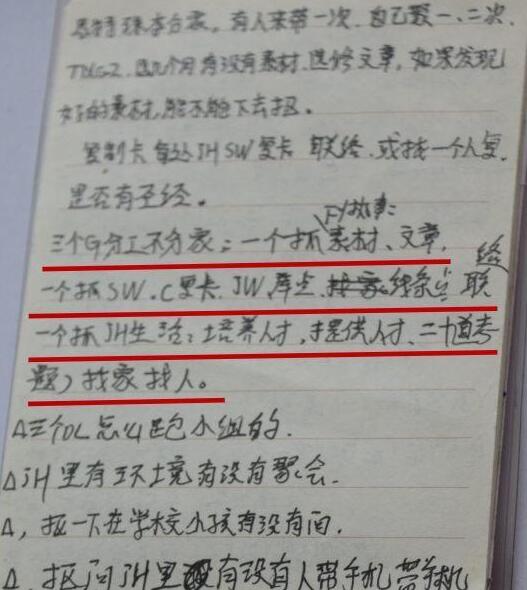 有人来带一次.自己聚一、二次.
几个月有没有素材.进修文章,如果发现
好的素材,能不能下去抓。
复制卡每处JH SW复卡 联络.或找一个人复.
是否有圣经。
FY故事:
三个G分工不分家:一个抓素材、文章.
一个抓SW.C复卡.JW,库点.线条点 联络
一个抓JH生活;培养人才,提供人才、二十道考
题)找家找人。
△三个DL怎么跑小组的.
△JH里有环境有没有聚会.
△,抓一下在学校小孩有没有问.
△.抓问JH里有没有人带手机 带手机